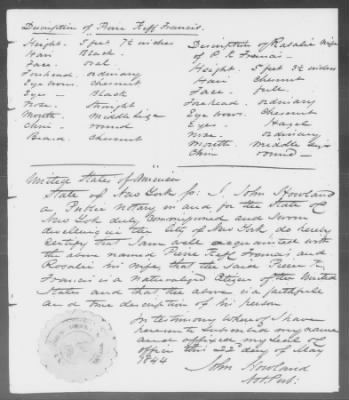 Description of Pierre Keff Francis.
Height. 5 feet 7½ inches
Hair Black.
Face. oval.
Forehead. ordinary
Eye brows. Chesnut
Eyes – Black
Nose. Straight
Mouth. Middle Size
Chin. round
Beard. Chesnut
Description of Rosalie wife
of P. K Francis –
Height. 5 feet 3½ inches
Hair Chesnut
Face – full.
Forehead. ordinary
Eye brows. Chesnut
Eyes. Hazel
Nose. ordinary
Mouth. Middle Size
Chin round –
United States of America
State of New York ss: I, John Howland
a Public notary in and for the State of
New York duly Commissioned and Sworn
dwelling in the City of New York do hereby
Certify that I am well acquainted with
the above named Pierre Keff Francis and
Rosalie his wife, that the said Pierre K
Francis is a naturalized Citizen of the United
States and that the above is a faithful
and true description of his person
In testimony whereof I have
hereunto subscribed my name
and affixed my seal of
office this 22d day of May
1844
John Howland
Not. Pub: